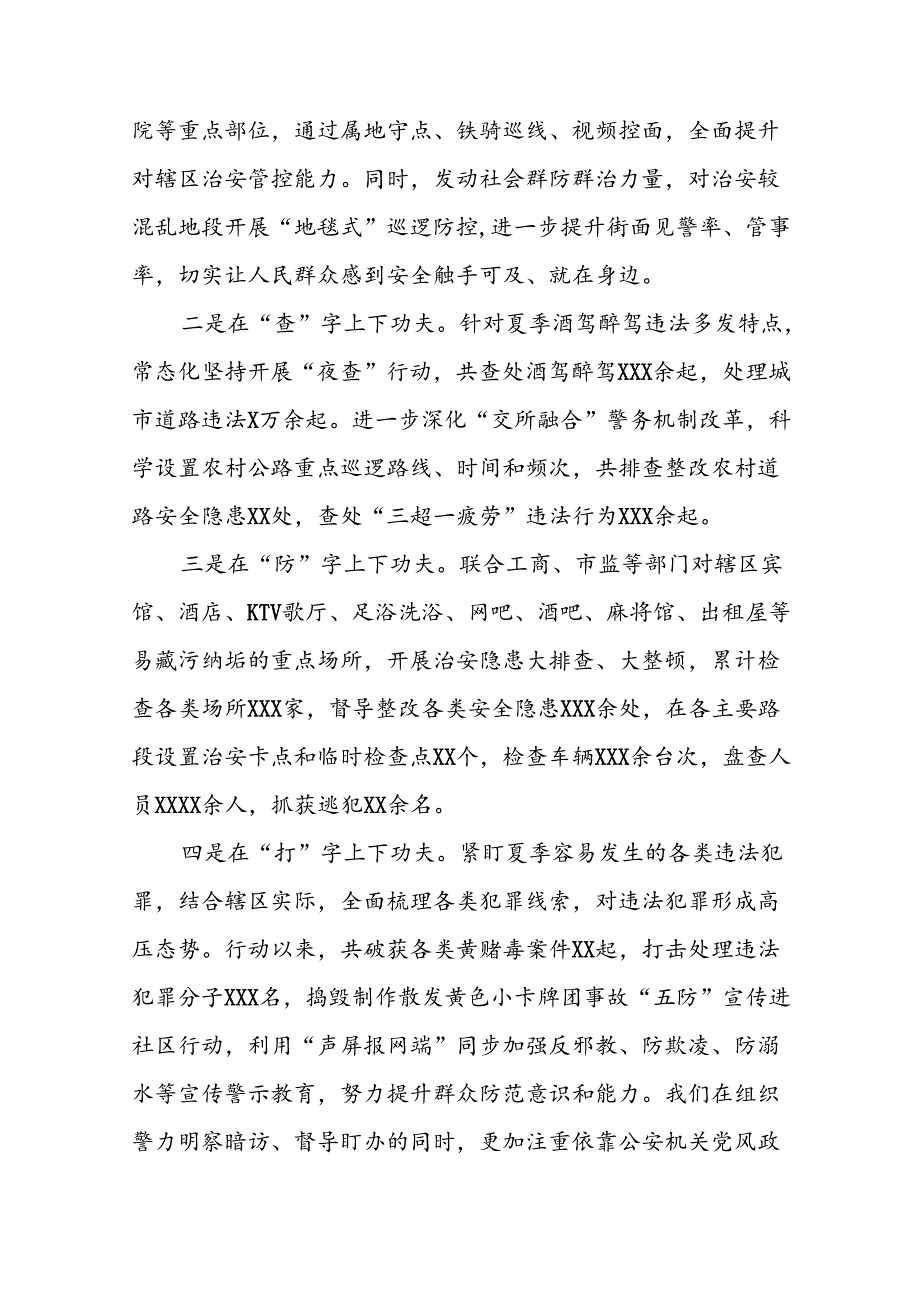 院等重点部位，通过属地守点、铁骑巡线、视频控面，全面提升
对辖区治安管控能力。同时，发动社会群防群治力量，对治安较
混乱地段开展“地毯式”巡逻防控,进一步提升街面见警率、管事
率，切实让人民群众感到安全触手可及、就在身边。
二是在“查”字上下功夫。针对夏季酒驾醉驾违法多发特点，
常态化坚持开展“夜查”行动，共查处酒驾醉驾XXX余起，处理城
市道路违法X万余起。进一步深化“交所融合”警务机制改革，科
学设置农村公路重点巡逻路线、时间和频次，共排查整改农村道
路安全隐患XX处，查处“三超一疲劳”违法行为XXX余起。
三是在“防”字上下功夫。联合工商、市监等部门对辖区宾
馆、酒店、KTV歌厅、足浴洗浴、网吧、酒吧、麻将馆、出租屋等
易藏污纳垢的重点场所，开展治安隐患大排查、大整顿，累计检
查各类场所XXX家，督导整改各类安全隐患XXX余处，在各主要路
段设置治安卡点和临时检查点XX个，检查车辆XXX余台次，盘查人
员XXXX余人，抓获逃犯XX余名。
四是在“打”字上下功夫。紧盯夏季容易发生的各类违法犯
罪，结合辖区实际，全面梳理各类犯罪线索，对违法犯罪形成高
压态势。行动以来，共破获各类黄赌毒案件XX起，打击处理违法
犯罪分子XXX名，捣毁制作散发黄色小卡牌团事故“五防”宣传进
社区行动，利用“声屏报网端”同步加强反邪教、防欺凌、防溺
水等宣传警示教育，努力提升群众防范意识和能力。我们在组织
警力明察暗访、督导盯办的同时，更加注重依靠公安机关党风政